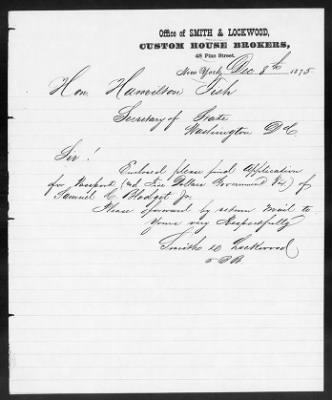 Office of SMITH & LOCKWOOD,
CUSTOM HOUSE BROKERS,
48 Pine Street.
New York, Dec 8th 1875
Hon. Hamilton Fish
Secretary of State
Washington D.C.
Sir!
Enclosed please find Application
for Passport (and Five Dollars Government fee) of
Samuel C. Blodget Jr.
Please forward by return Mail to
Yours very Respectfully
Smith & Lockwood